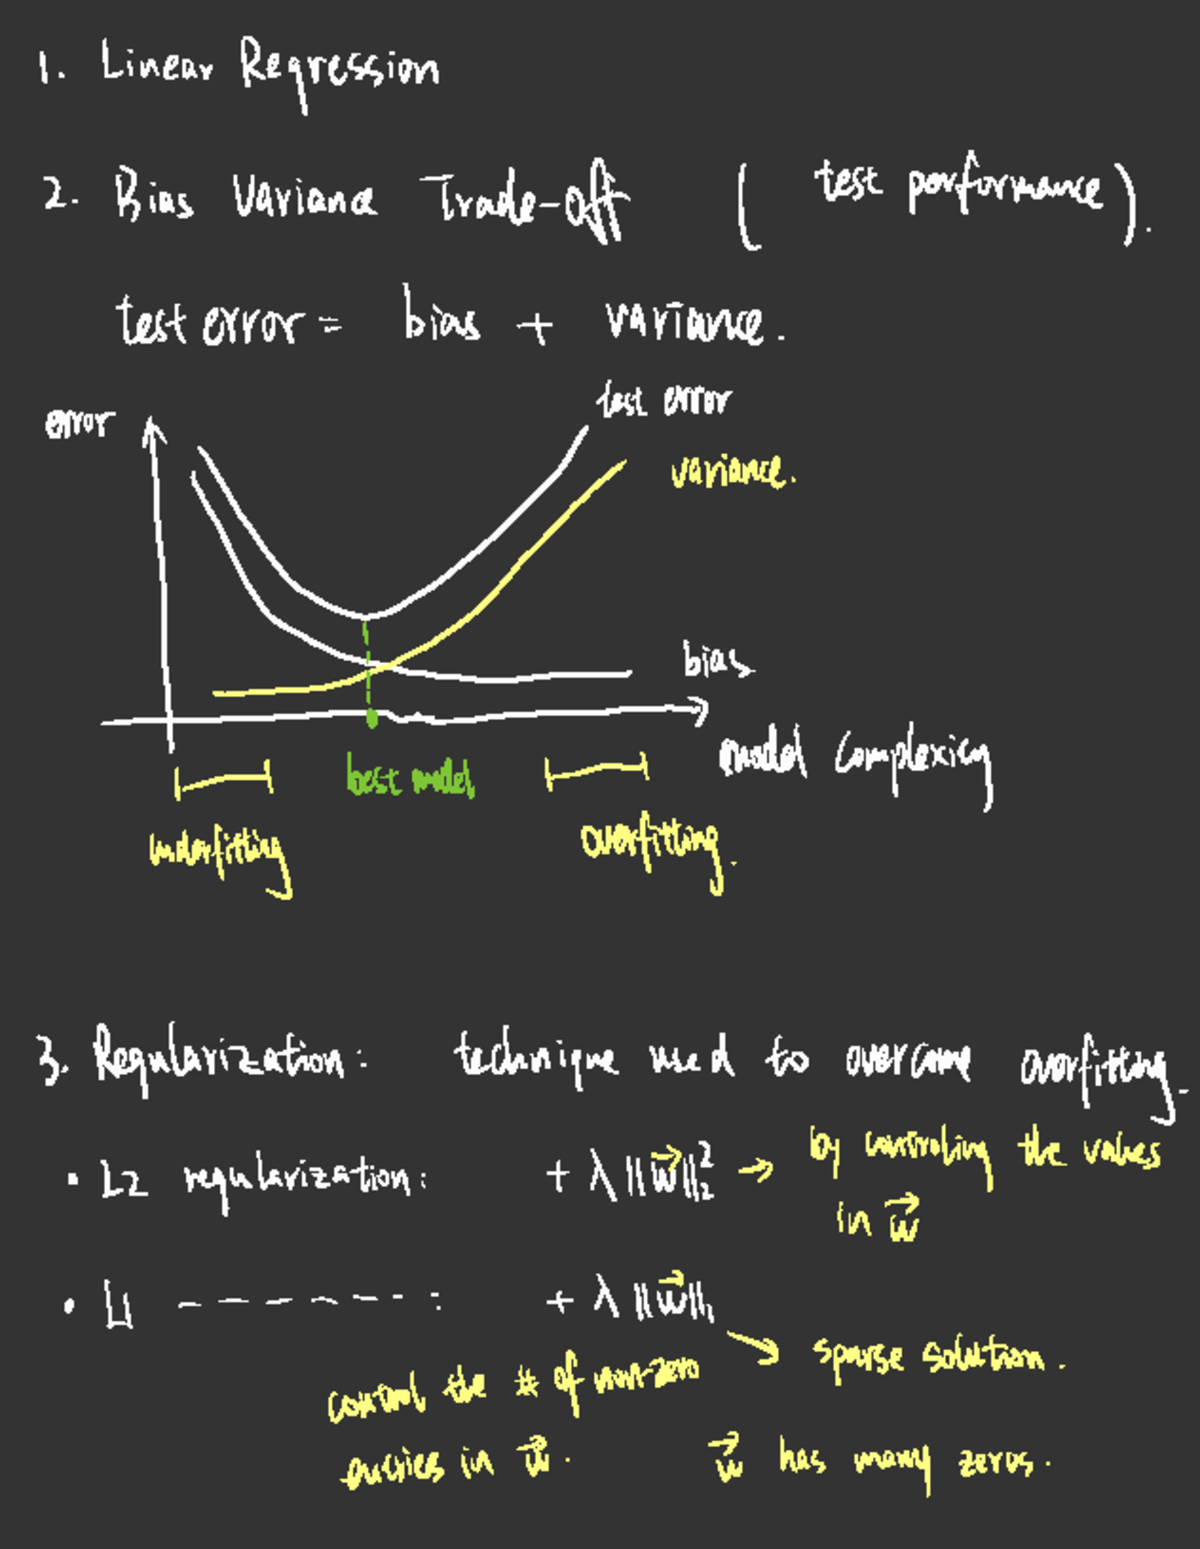 1. Linear Regression
2. Bias Variance Trade-off ( test performance ).
test error = bias + variance.
error
test error
variance.
bias
model complexity
best model
underfitting
overfitting.
3. Regularization: technique used to overcome overfitting.
• L2 regularization: + λ||w⃗||₂² → by controling the values
in w⃗
• L1 - - - - - - - : + λ||w⃗||₁
→ sparse solution.
control the # of non-zero
entries in w⃗. w⃗ has many zeros.